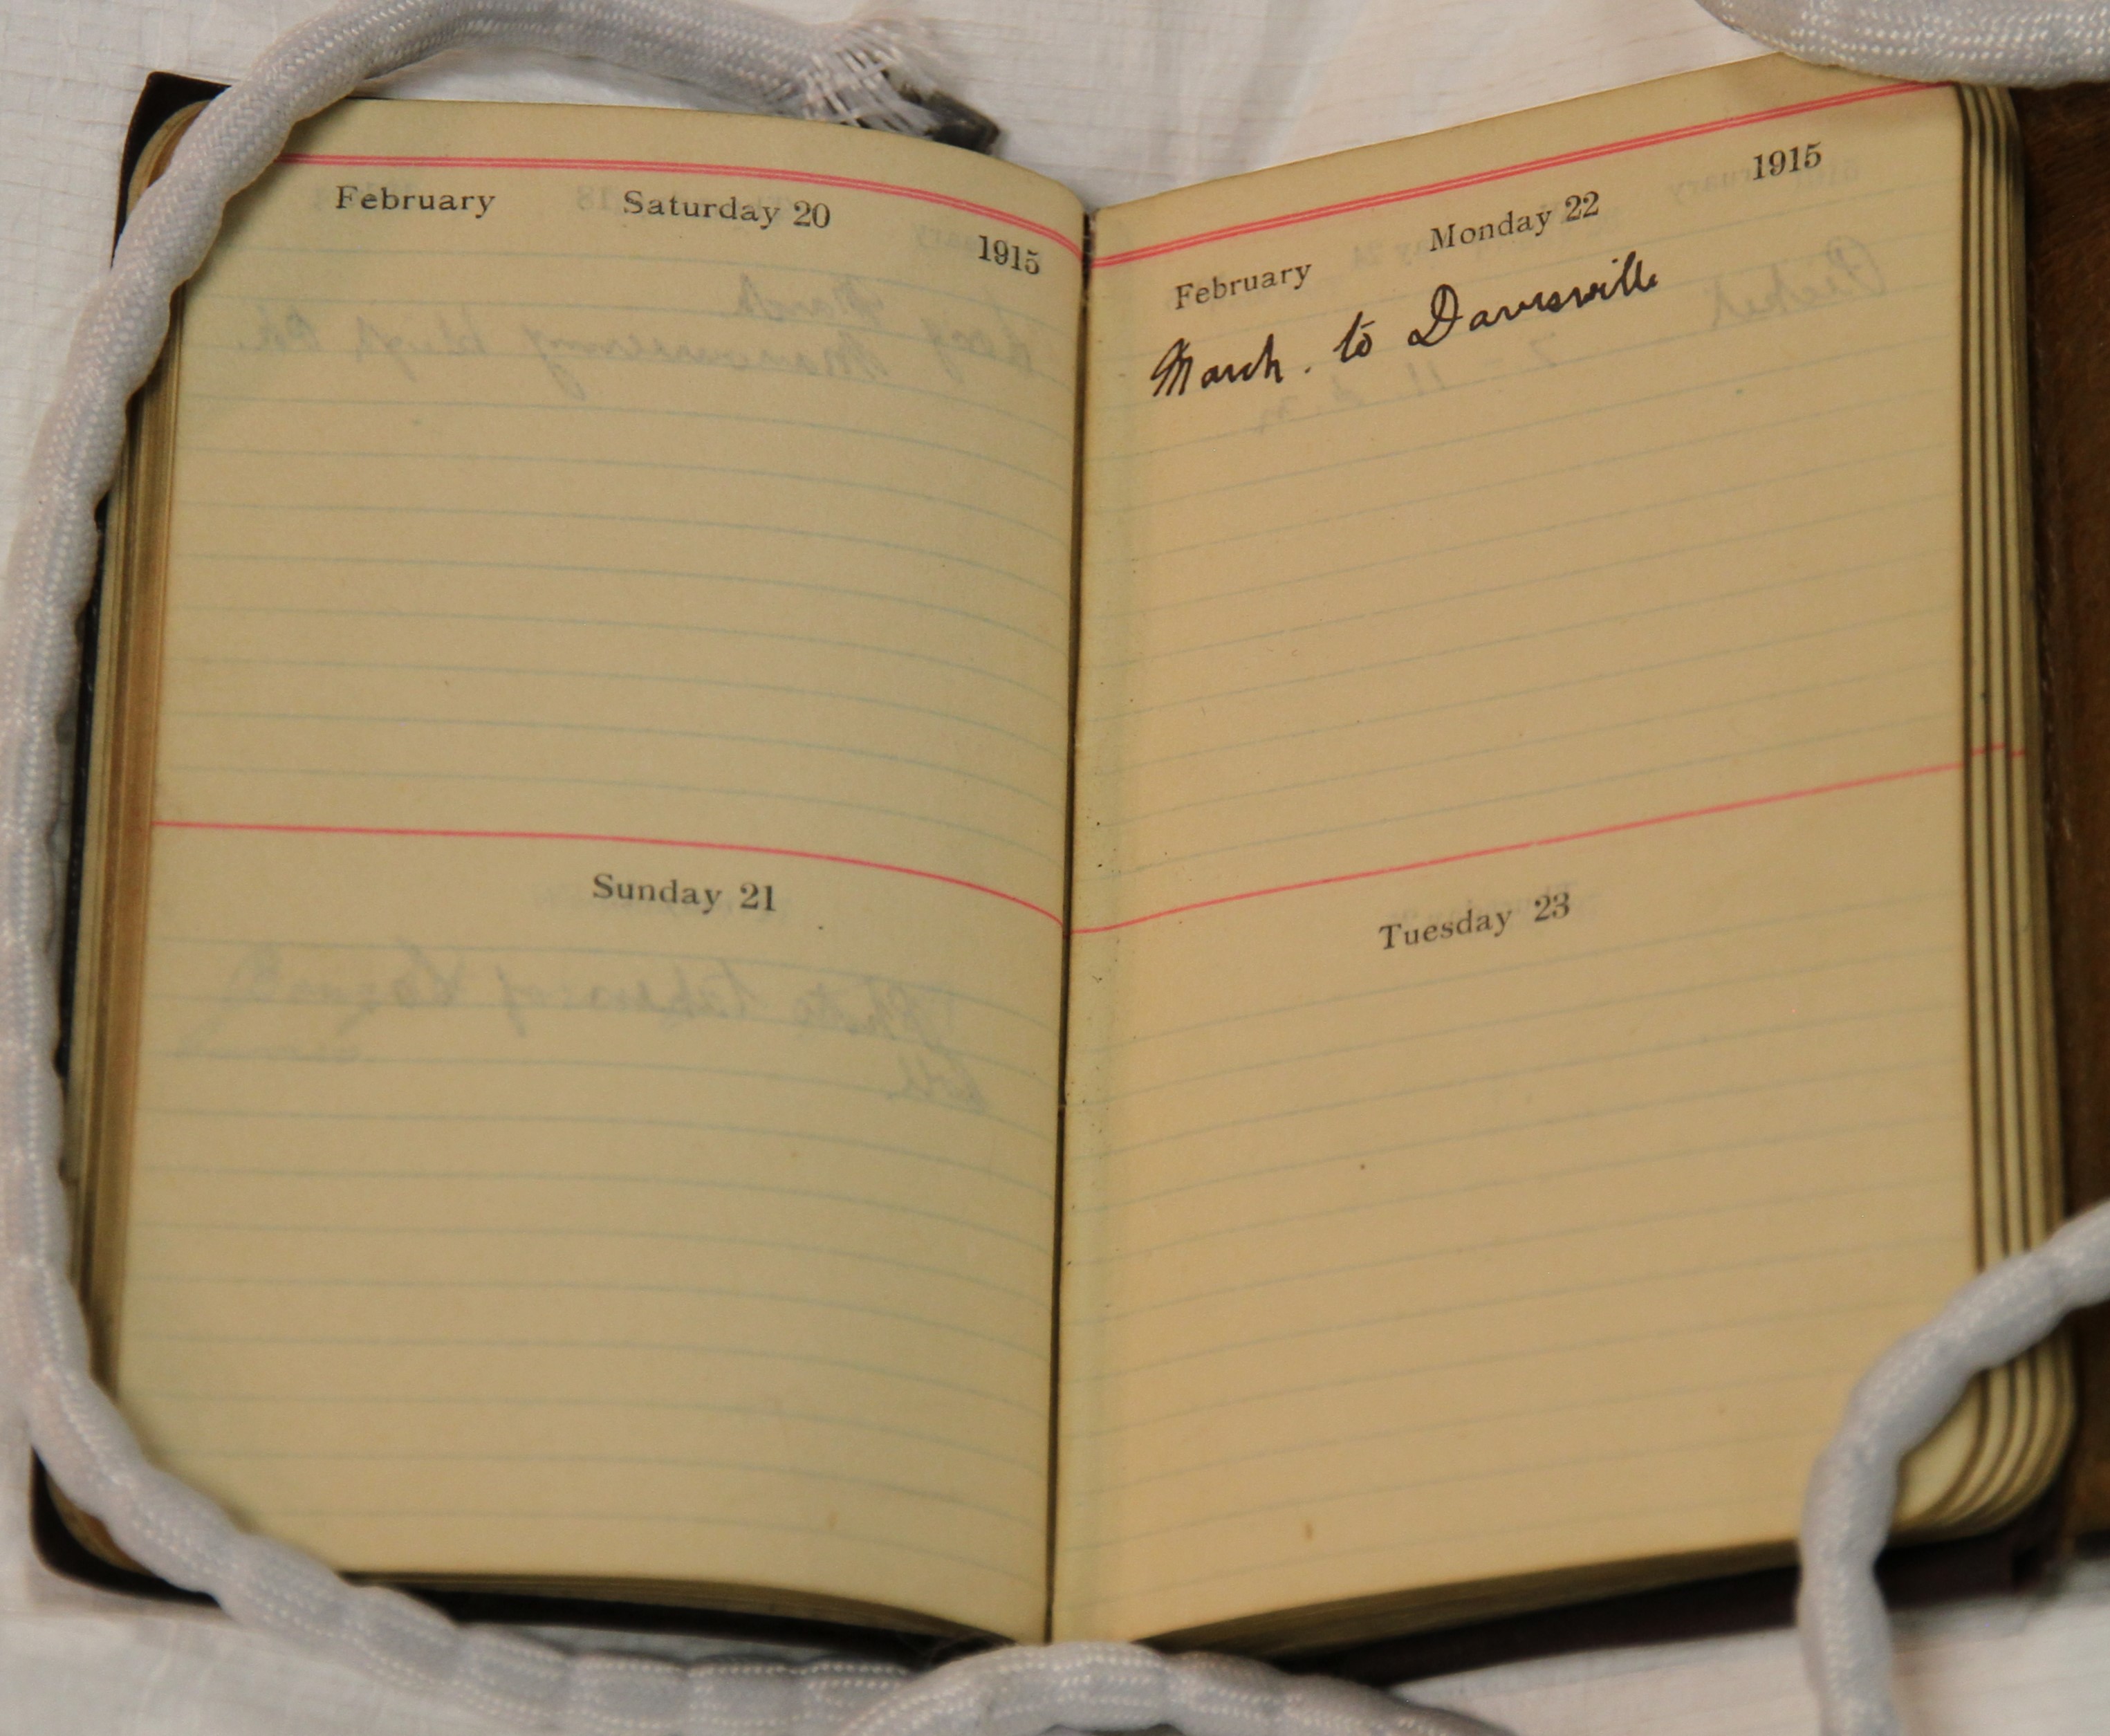 February Saturday 20 1915
Sunday 21
February Monday 22 1915
March . to Davisville
Tuesday 23